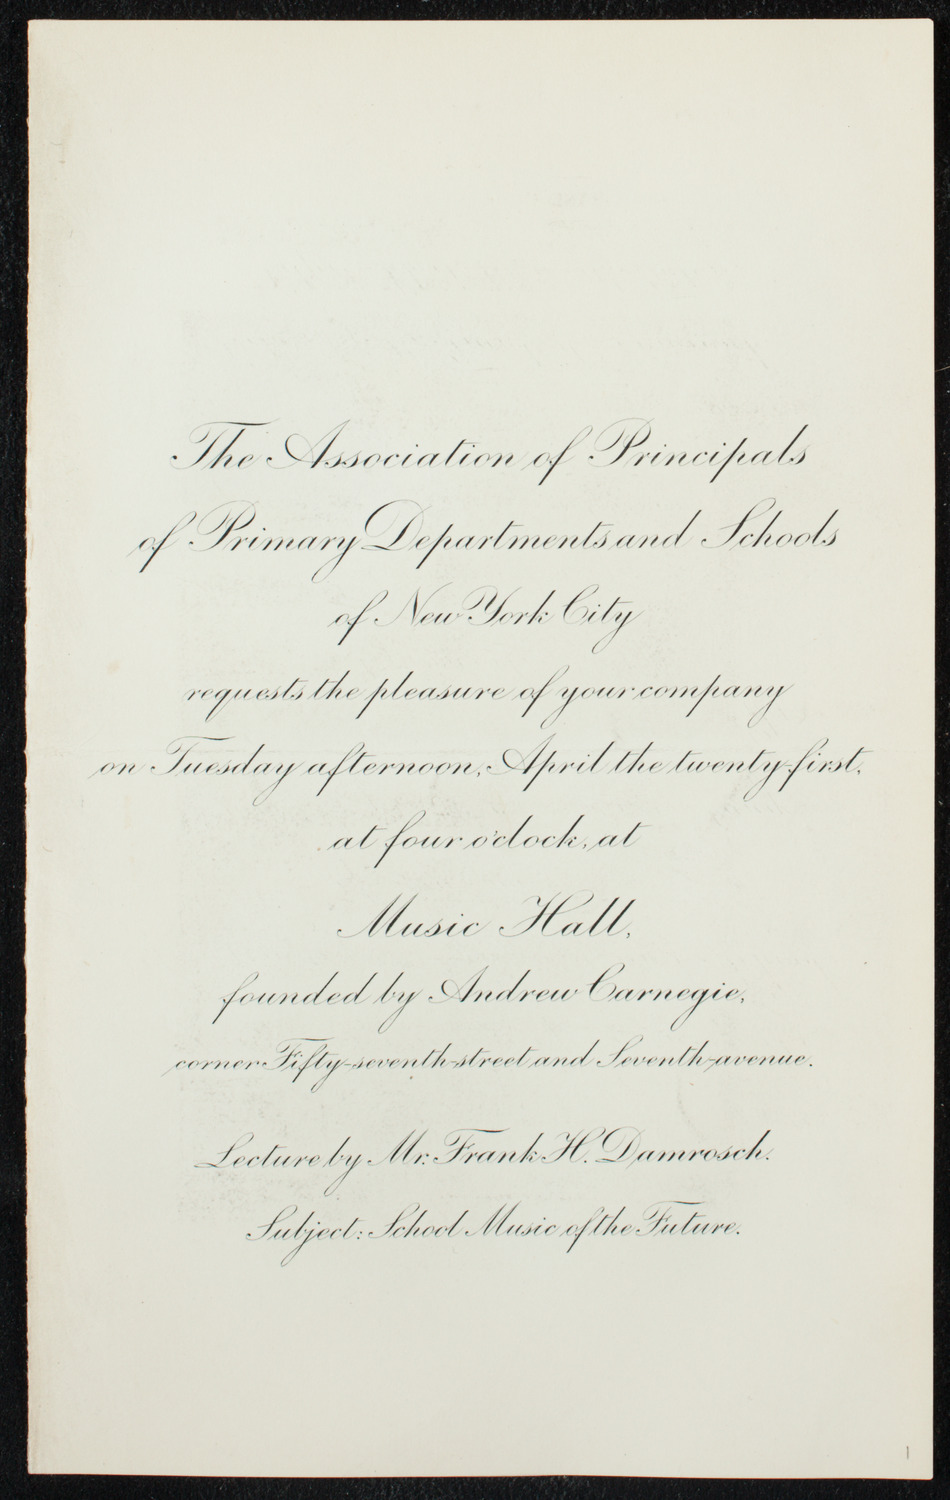 The Association of Principals
of Primary Departments and Schools
of New York City
requests the pleasure of your company
on Tuesday afternoon, April the twenty-first,
at four o'clock, at
Music Hall,
founded by Andrew Carnegie,
corner Fifty-seventh-street and Seventh-avenue.
Lecture by Mr. Frank H. Damrosch.
Subject: School Music of the Future.